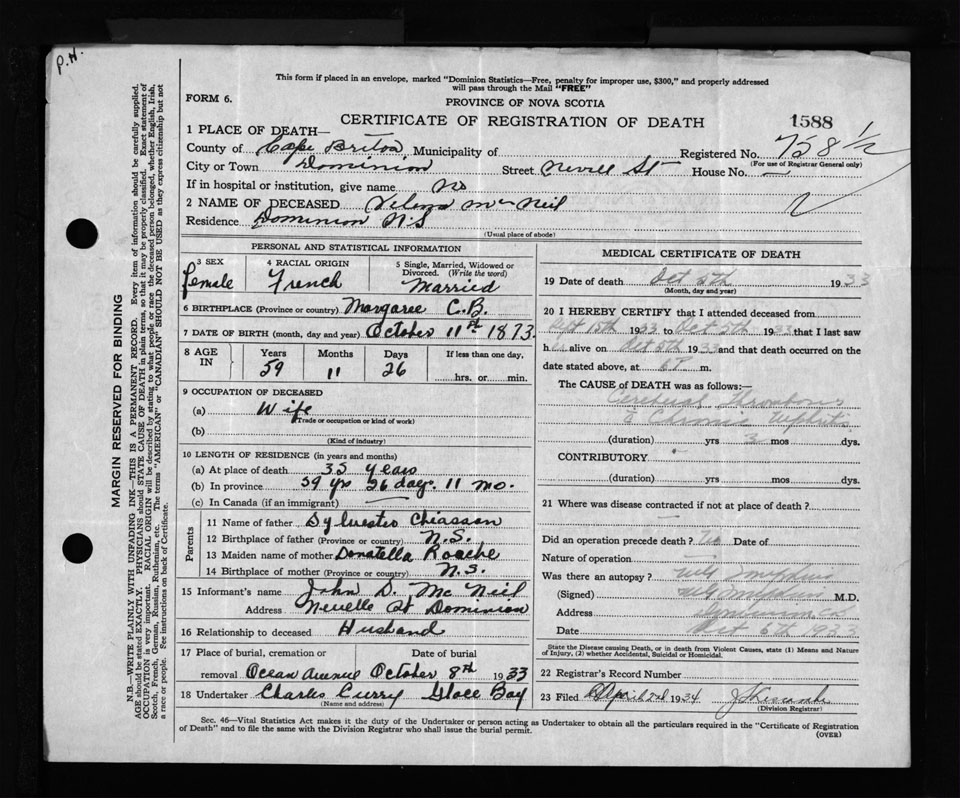 P.H.
This form if placed in an envelope, marked "Dominion Statistics—Free, penalty for improper use, $300," and properly addressed
will pass through the Mail "FREE"
FORM 6.
PROVINCE OF NOVA SCOTIA
CERTIFICATE OF REGISTRATION OF DEATH
1588 ½
1 PLACE OF DEATH—
County of Cape Briton, Municipality of
Registered No. 758 1/2
(For use of Registrar General only)
City or Town Dominion Street Nevell St House No. —
If in hospital or institution, give name No
2 NAME OF DECEASED McNeil
Residence Dominion N.S
(Usual place of abode)
PERSONAL AND STATISTICAL INFORMATION
3 SEX
female
4 RACIAL ORIGIN
French
5 Single, Married, Widowed or
Divorced. (Write the word)
Married
6 BIRTHPLACE (Province or country) Margaree C.B.
7 DATE OF BIRTH (month, day and year) October 11th 1873
8 AGE
IN
Years
59
Months
11
Days
26
If less than one day,
hrs. or min.
9 OCCUPATION OF DECEASED
(a) Wife
(Trade or occupation or kind of work)
(b)
(Kind of industry)
10 LENGTH OF RESIDENCE (in years and months)
(a) At place of death 35 years
(b) In province 59 yrs 26 days 11 mo.
(c) In Canada (if an immigrant) —
Parents
11 Name of father Sylvester Chiasson
12 Birthplace of father (Province or country) N.S.
13 Maiden name of mother Donatella Roache
14 Birthplace of mother (Province or country) N.S.
15 Informant's name John D. Mc Neil
Address Nevelle St Dominion
16 Relationship to deceased Husband
17 Place of burial, cremation or Date of burial
removal Ocean Avenue October 8th 1933
18 Undertaker Charles Curry Glace Bay
(Name and address)
MEDICAL CERTIFICATE OF DEATH
19 Date of death Oct 5th 1933
(Month, day and year)
20 I HEREBY CERTIFY that I attended deceased from
Sept 15th 1933 to Oct 5th 1933 that I last saw
her alive on Oct 5th 1933 and that death occurred on the
date stated above, at m.
The CAUSE of DEATH was as follows:—
Cerebral Thrombosis
Chronic Nephritis
(duration) yrs 3 mos dys.
CONTRIBUTORY
(duration) yrs mos dys.
21 Where was disease contracted if not at place of death?
Did an operation precede death? No Date of
Nature of operation —
Was there an autopsy?
(Signed) M.D.
Address
Date Oct 6th 1933
State the Disease causing Death, or in death from Violent Causes, state (1) Means and Nature
of Injury, (2) whether Accidental, Suicidal or Homicidal.
22 Registrar's Record Number
23 Filed April 2d 1934
(Division Registrar)
Sec. 46—Vital Statistics Act makes it the duty of the Undertaker or person acting as Undertaker to obtain all the particulars required in the "Certificate of Registration
of Death" and to file the same with the Division Registrar who shall issue the burial permit.
(OVER)
MARGIN RESERVED FOR BINDING
N.B.—WRITE PLAINLY WITH UNFADING INK—THIS IS A PERMANENT RECORD. Every item of information should be carefully supplied.
AGE should be stated EXACTLY. PHYSICIANS should STATE CAUSE OF DEATH in plain terms, so that it may be properly classified. Exact statement of
OCCUPATION is very important. RACIAL ORIGIN will be described by stating to what people or race the deceased person belonged, whether English, Irish,
Scotch, French, German, Russian, Ruthenian, etc. The terms "AMERICAN" or "CANADIAN" SHOULD NOT BE USED as they express citizenship but not
a race or people. See instructions on back of Certificate.